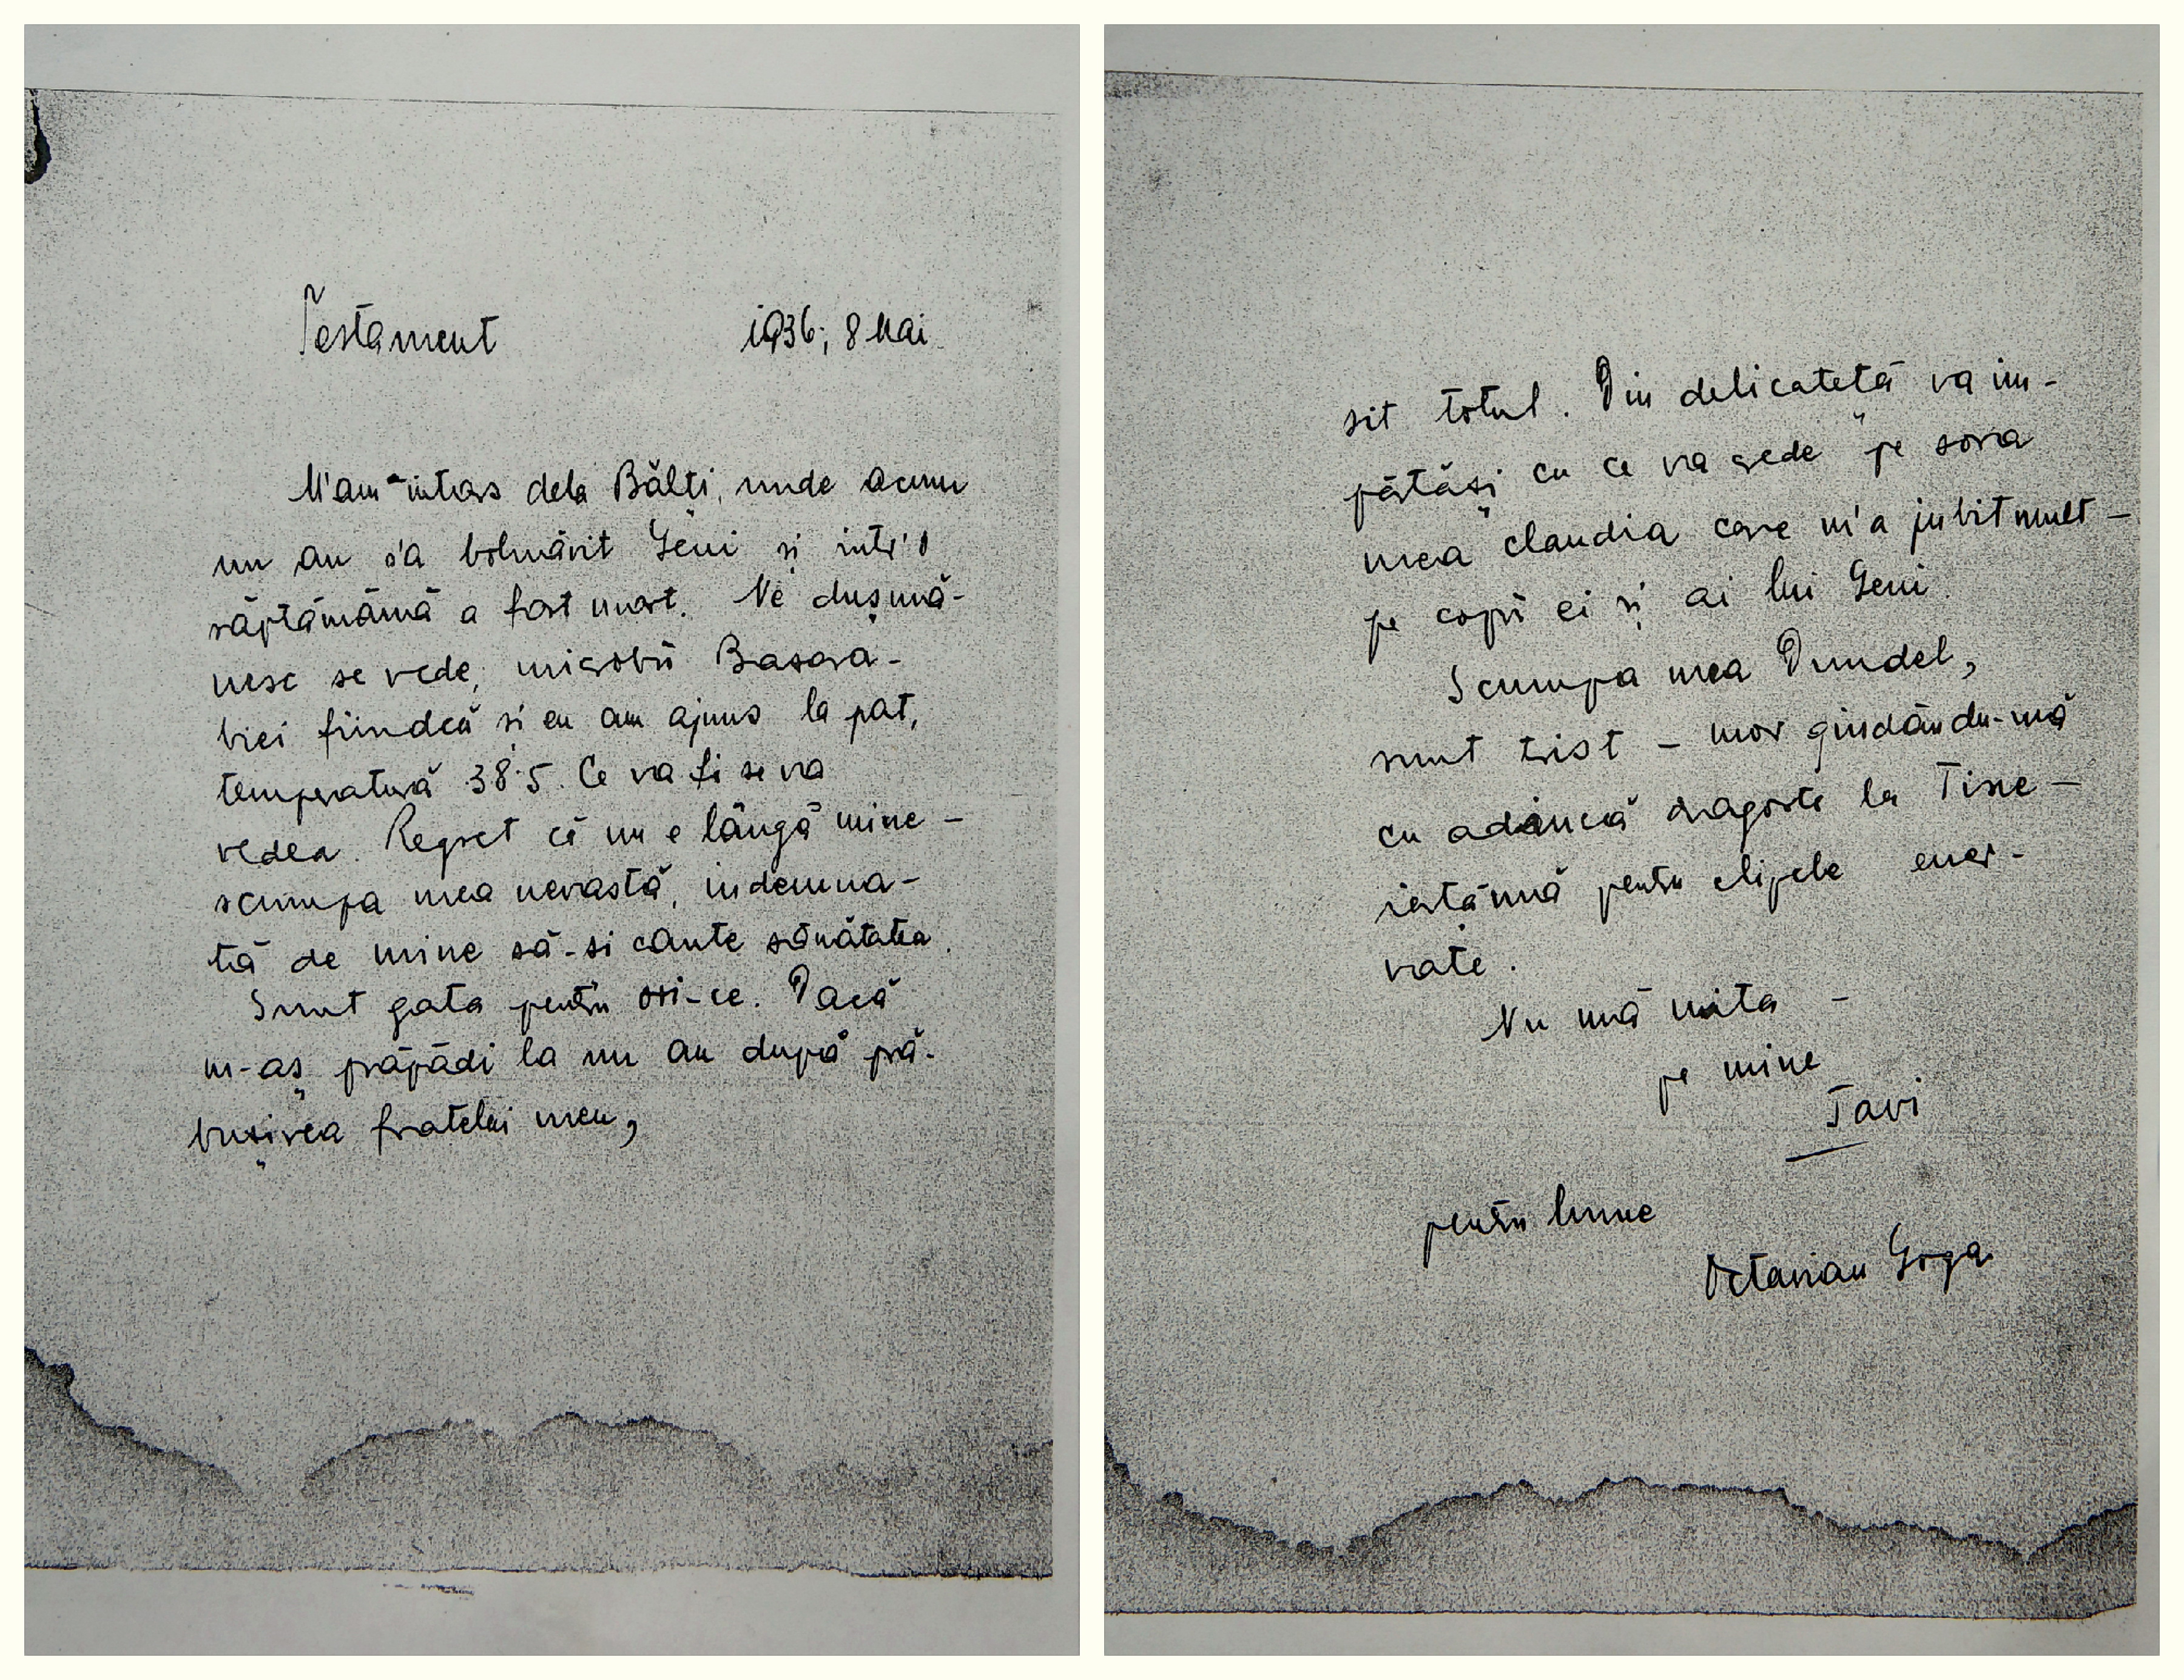 Testament 1936; 8 Mai
M'am întors dela Bălți, unde acum
un an s'a bolnăvit Geni și intr'o
săptămână a fost mort. Ne dușmă-
nesc se vede, microbii Basara-
biei fiindcă și eu am ajuns la pat,
temperatură 38·5. Ce va fi se va
vedea. Regret că nu e lângă mine –
scumpa mea nevastă, indemna-
tă de mine să-si caute sănătatea.
Sunt gata pentru ori-ce. Dacă
m-aș prăpădi la un an după pră-
bușirea fratelui meu,
sit totul. Din delicateță va im-
părtăși cu ce va crede pe sora
mea Claudia care m'a iubit mult –
pe copii ei și ai lui Geni.
Scumpa mea
sunt trist – mor gindându-mă
cu adâncă dragoste la Tine –
iartă-mă pentru clipele ener-
vate.
Nu mă uita –
pe mine
Tavi
pentru lume
Octavian Goga